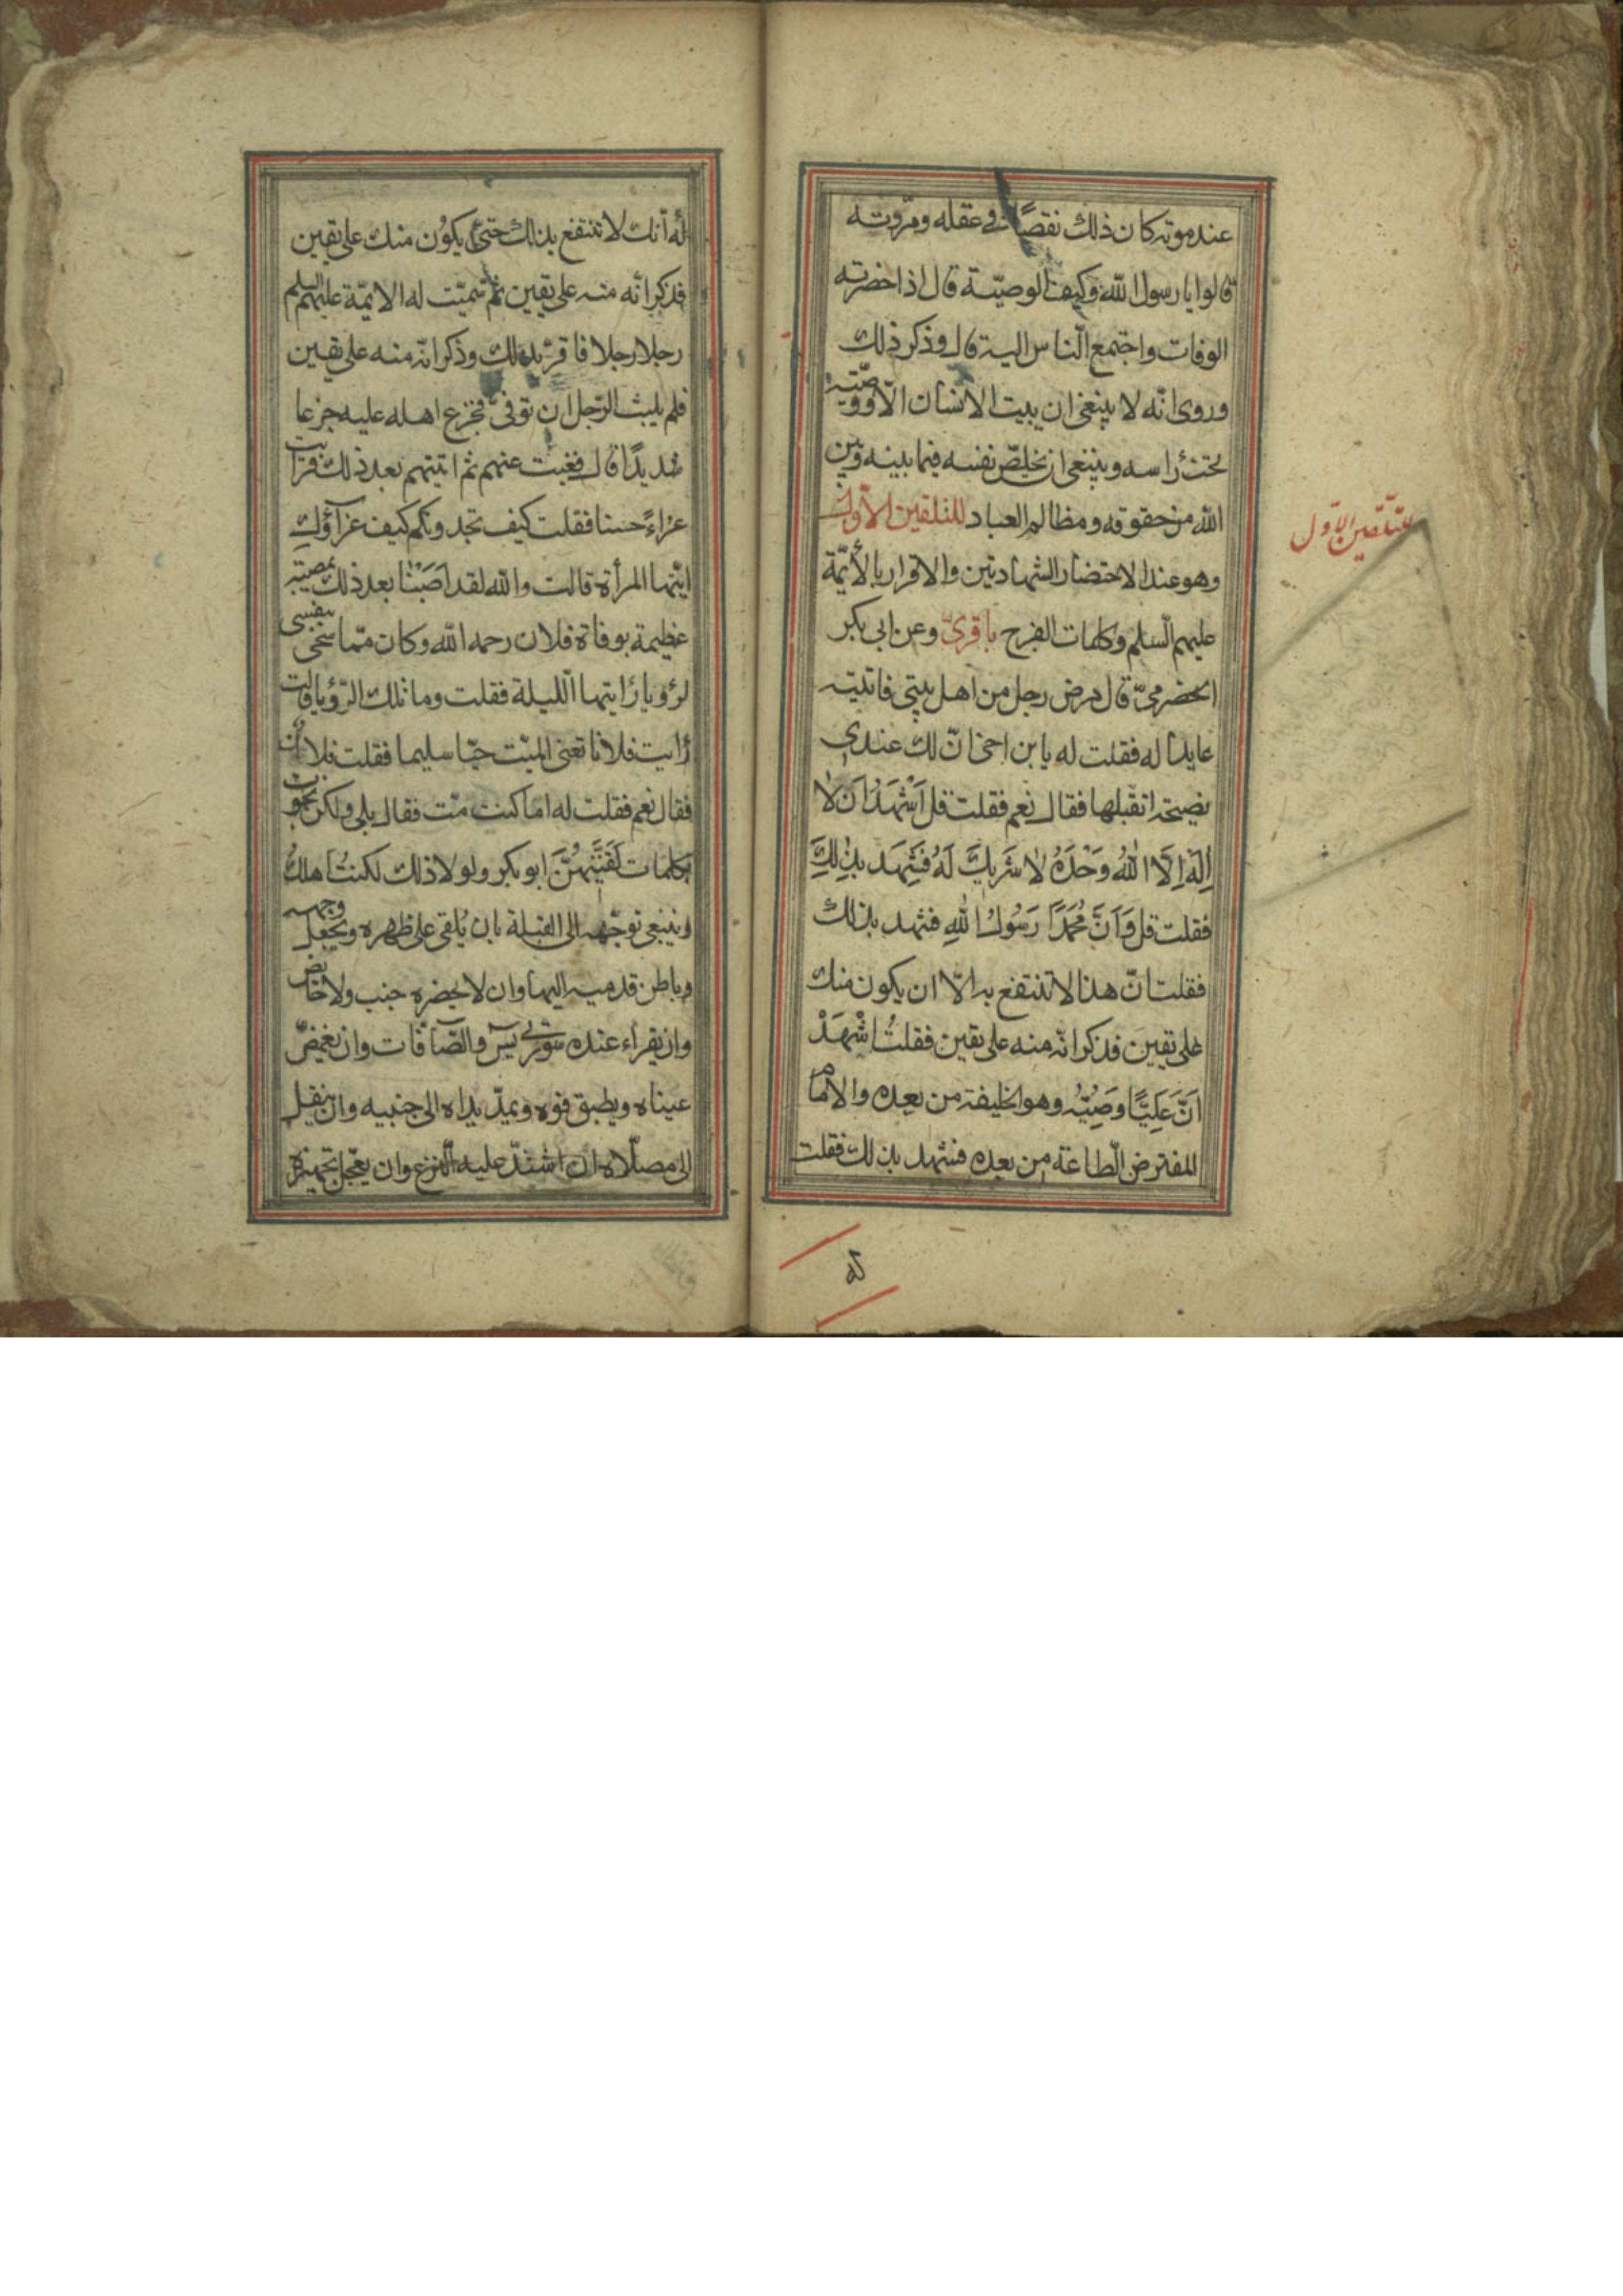 عند موته كان ذلك نقصًا في عقله ومرّوته
قالوا يا رسول الله وكيف الوصيّة قال اذا حضرته
الوفات واجتمع النّاس اليه قال وذكر ذلك
وروى انّه لا ينبغى ان يبيت الانسان الّا ووصيّته
تحت رأسه وينبغى ان يخلّص نفسه فيما بينه وبين
الله من حقوقه ومظالم العباد للتلقين الاوّل
وهو عند الاحتضار الشهادتين والاقرار بالأئمّة
عليهم السّلم وكلمات الفرج باقرىّ وعن ابى بكر
الحضرمىّ قال مرض رجل من اهل بيتى فاتيته
عايدا له فقلت له يا بن اخى انّ لك عندى
نصيحة اتقبلها فقال نعم فقلت قل اَشْهَدُ اَن لا
اِلٰهَ اِلَّا اللهُ وَحْدَهُ لا شَرِيكَ لَهُ فَشَهِدَ بِذٰلِكَ
فقلت قل وَاَنَّ مُحَمَّدًا رَسُولُ اللهِ فشهد بذلك
فقلت انّ هذا لا تنتفع به الّا ان يكون منك
على يقين فذكر انّه منه على يقين فقلتُ اشْهَدْ
اَنَّ عَلِيًّا وَصِيُّه وهو الخليفة من بعده والامام
المفترض الطّاعة من بعده فشهد بذلك فقلت
للتّلقين الاوّل
له
له انّك لا تنتفع بذلك حتّى يكون منك على يقين
فذكر انّه منه على يقين ثم سمّيت له الائمّة عليهم السلم
رجلا رجلا فاقرّ بذلك وذكر انّه منه على يقين
فلم يلبث الرّجل ان توفّى فجزع اهله عليه جزعا
شديدًا قال فغبت عنهم ثم اتيتهم بعد ذلك فرايت
عزاءً حسنا فقلت كيف تجدونكم كيف عزآؤكِ
ايّتها المرأة قالت والله لقد اَصَبْنا بعد ذلك بمصيبة
عظيمة بوفاة فلان رحمه الله وكان ممّا سخى بنفسى
لرؤيا رأيتها اللّيلة فقلت وما تلك الرّؤيا قالت
رأيت فلانا تعنى الميّت حيّا سليما فقلت فلان
فقال نعم فقلت له اما كنت متّ فقال بلى ولكن نجوت
بكلمات لَقَّنَنِيهُنَّ ابو بكر ولولا ذلك لكنتُ اهلكُ
وينبغى توجّهه الى القبلة بان يُلقى على ظهره ويجعل وجهه
وباطن قدميه اليها وان لا يحضره جنب ولا حائض
وان يقراء عنده سورتى يس والصّآفّات وان تغمّض
عيناه ويطبق فوه ويمدّ يداه الى جنبيه وان ينقل
الى مصلّاه ان اشتدّ عليه النّزع وان يعجّل تجهيزه